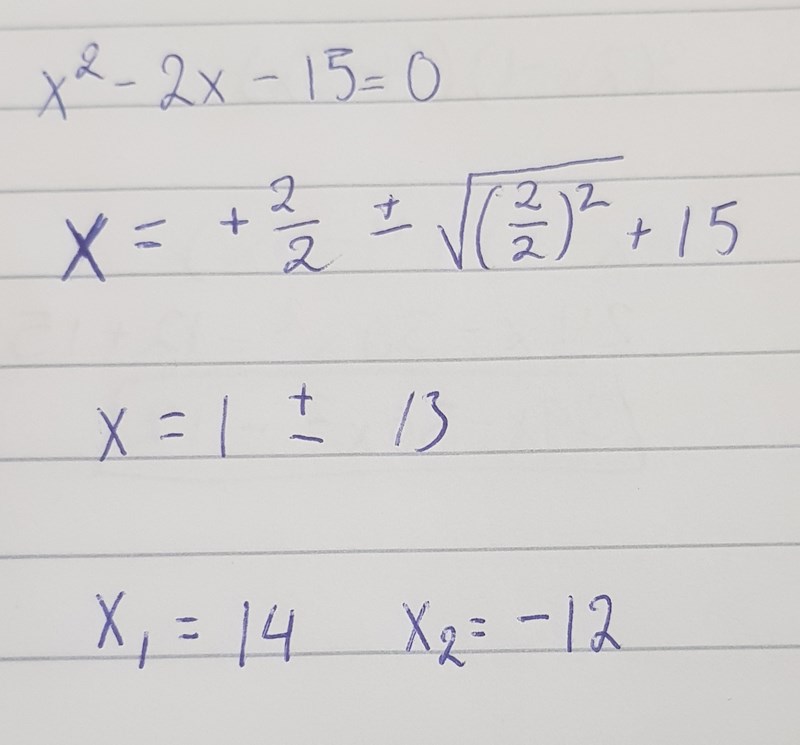 x² - 2x - 15 = 0
x = + 2/2 ± √(2/2)² + 15
x = 1 ± 13
x₁ = 14 x₂ = -12